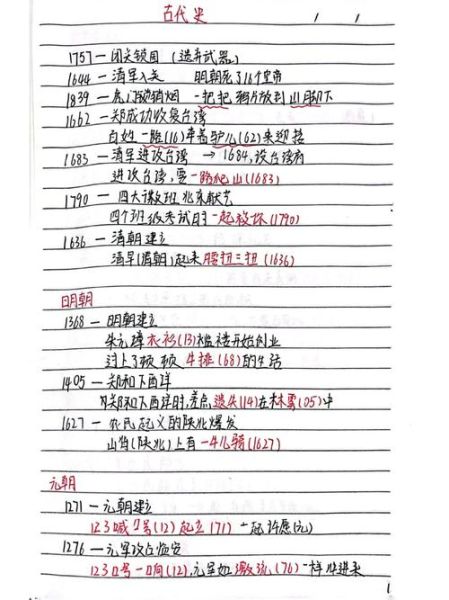 古代史
1757—闭关锁国 (遗弃武器)
1644—清军入关 明朝死了16个皇帝
1839—虎门销烟 一把把鸦片放到山脚下
1662—郑成功收复台湾
百姓一路(16)牵着驴儿(62)来迎接
1683—清军进攻台湾 → 1684,设台湾府
进攻台湾,要一路爬山(1683)
1790—四大徽班北京献艺
四个班级考试时一起被坏(1790)
1636—清朝建立
清早(清朝)起来腰扭三扭(1636)
明朝
1368—明朝建立
朱元璋衣衫(13)褴褛开始创业
过上了顿顿牛排(68)的生活
1405—郑和下西洋
郑和下西洋时,差点遗失(14)在林雾(05)中
1627—农民起义的陕北爆发
山背(陕北)上有一头儿骑(1627)
元朝
1271—元朝建立
123喊口号(12)起立(71)一起许愿(元)
1276—元军攻占临安
123口号一响(12),元军如激流(76)一样冲进来
1